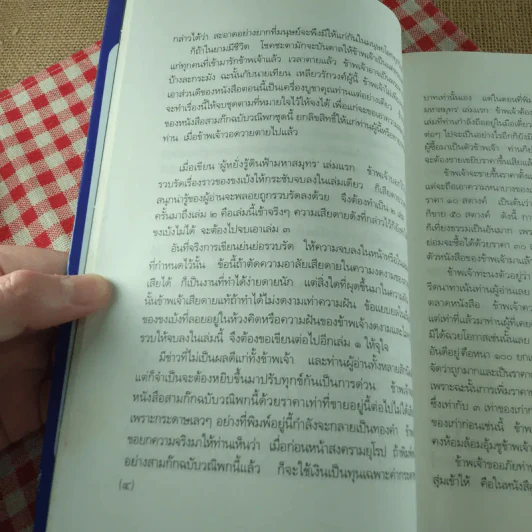 กล่าวได้ว่า สะอาดอย่างยากที่มนุษย์จะพึงมีให้แก่กันใน
ก็ถ้าในยามมีชีวิต โชคชะตามักจะบันดาลให้ข้าพเจ้าเป็น
แก่ทุกคนที่เข้ามารักข้าพเจ้าแล้ว เวลาตายแล้ว ข้าพเจ้าอาจเป็น
บ้างละกระมัง ฉะนั้นกับนายเทียน เหลียวรักวงศ์ผู้นี้ ข้าพเจ้า
เอาส่วนดีของหนังสือตอนนี้เป็นเครื่องบูชาคุณท่านแต่อย่างเดียว
จะทำเรื่องนี้ให้จบชุดตามที่หมายใจไว้ให้จงได้ เพื่อแก่จะขอเอา
ของหนังสือสามก๊กฉบับวณิพกชุดนี้ ยกลิขสิทธิ์ให้แก่ท่านผู้นี้
ท่าน เมื่อข้าพเจ้าวอดวายตายไปแล้ว
เมื่อเขียน 'ผู้หยั่งรู้ดินฟ้ามหาสมุทร' เล่มแรก
รวบรัดเรื่องราวของขงเบ้งให้กระชับจบลงในเล่มเดียว ก็เสียดาย
สนุกน่ารู้ของผู้อ่านจะพลอยถูกรวบรัดลงด้วย จึงต้องทำเป็น ๒
ครั้นมาถึงเล่ม ๒ คือเล่มนี้เข้าจริงๆ ความเสียดายดังที่กล่าวไว้
ขงเบ้งไม่ได้ จะต้องไปจบเอาเล่ม ๓
อันที่จริงการเขียนย่นย่อรวบรัด ให้ความจบลงในหน้าหรือใน
ที่กำหนดไว้นั้น ข้อนี้ถ้าตัดความอาลัยเสียดายในความงดงามของ
เสียได้ ก็เป็นงานที่ทำได้ง่ายดายนัก แต่สิ่งใดที่ผุดขึ้นมาใน
นั้นข้าพเจ้าเสียดายแท้ถ้าทำได้ไม่งดงามเท่าความฝัน ข้อแยบยล
ของขงเบ้งที่ลอยอยู่ในห้วงคิดหรือความฝันของข้าพเจ้างดงาม
รวบให้จบลงในเล่มนี้ จึงต้องขอเขียนต่อไปอีกเล่ม ๑ ให้จุใจ
มีข่าวที่ไม่เป็นผลดีแก่ทั้งข้าพเจ้า และท่านผู้อ่านทั้งหลาย
แต่ก็จำเป็นจะต้องหยิบขึ้นมาปรับทุกข์กันเป็นการด่วน ข้าพเจ้า
หนังสือสามก๊กฉบับวณิพกนี้ด้วยราคาเท่าที่ขายอยู่นี้ต่อไปไม่ได้
เพราะกระดาษเลวๆ อย่างที่พิมพ์อยู่นี้กำลังจะกลายเป็นทองคำ
ขอยกความจริงมาให้ท่านเห็นว่า เมื่อก่อนหน้าสงครามยุโรป
อย่างสามก๊กฉบับวณิพกนี้แล้ว ก็จะใช้เงินเป็นทุนเฉพาะค่า
(๔)
บาทเท่านั้นเอง แต่ในตอนที่พิมพ์
มหาสมุทร' เล่มแรก ข้าพเจ้าต้อง
เล่มที่ท่านกำลังถืออยู่ในมือเดี๋ยว
ต่อๆ ไปจะเป็นอย่างไรอีกก็ยัง
ผู้ซื้อมาเป็นตัวข้าพเจ้า ท่านก็
จะต้องขายขยับราคาขึ้นเสีย
ข้าพเจ้าจะขายขึ้นราคาตั้ง
ราคา ๑๐ สตางค์ เป็นต้นว่า
ก็ขาย ๕๐ สตางค์ ดังนี้
ก็เที่ยงธรรมเป็นอันมาก
ย่อมจะซื้อได้ด้วยราคา ๓๐
ตัวหนังสือของข้าพเจ้าแล้ว
ข้าพเจ้าทะนงตัวอยู่ว่า
ตลาดหนังสือ ข้าพเจ้า
แต่เท่าที่แล้วมาท่านผู้
มิได้ฉวยโอกาสเช่นนั้นเลย
อันดีอยู่คือหนา ๑๐๐ ยก
จัดว่าถูกมากและเป็นราคา
เพราะฉะนั้นการเพิ่มราคา
ซึ่งเท่ากับ ๓ เท่าของ
ของเก่าก่อนเช่นนี้
ข้าพเจ้าขออภัยท่าน
สุ่มเข้าให้ คือในหนังสือ